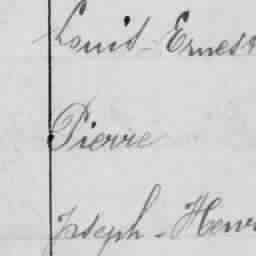 Louis-Ernest
Pierre
Joseph-Henri